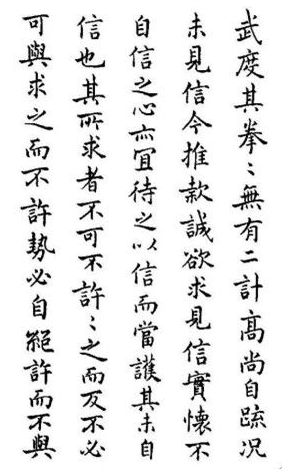 武度其拳〻無有二計髙尚自䟽况
未見信今推款誠欲求見信實懷不
自信之心亦冝待之以信而當護其未自
信也其所求者不可不許〻之而反不必
可與求之而不許勢必自絕許而不與